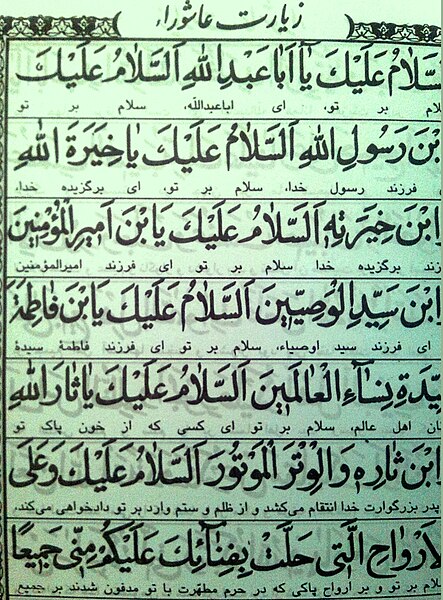 زیارت عاشوراء
اَلسَّلامُ عَلَيْكَ يٰا اَباعَبْدِاللهِ اَلسَّلامُ عَلَيْكَ
بر تو، ای اباعبدالله، سلام بر تو
بْنَ رَسُولِ اللهِ اَلسَّلامُ عَلَيْكَ يٰاخِيَرَةَ اللهِ
فرزند رسول خدا، سلام بر تو، ای برگزیده خدا،
ابْنَ خِيَرَتِهِ اَلسَّلامُ عَلَيْكَ يَابْنَ اَميرِالْمُؤْمِنينَ
برگزیده خدا سلام بر تو ای فرزند امیرالمؤمنین
ابْنَ سَيِّدِالْوَصِيّينَ اَلسَّلامُ عَلَيْكَ يَابْنَ فاطِمَةَ
ای فرزند سید اوصیاء، سلام بر تو ای فرزند فاطمهٔ سیدهٔ
يِّدَةِ نِسٰآءِ الْعٰالَمينَ اَلسَّلامُ عَلَيْكَ يٰاثٰارَاللهِ
اهل عالم، سلام بر تو ای کسی که از خون پاک تو
ابْنَ ثٰارِهِ وَالْوِتْرَ الْمَوْتُورَ اَلسَّلامُ عَلَيْكَ وَعَلَى
پدر بزرگوارت خدا انتقام می‌کشد و از ظلم و ستم وارد بر تو دادخواهی می‌کند،
الْاَرْوٰاحِ الَّتى حَلَّتْ بِفِنٰآئِكَ عَلَيْكُمْ مِنّى جَميعًا
بر تو و بر ارواح پاکی که در حرم مطهّرت با تو مدفون شدند بر جمیع